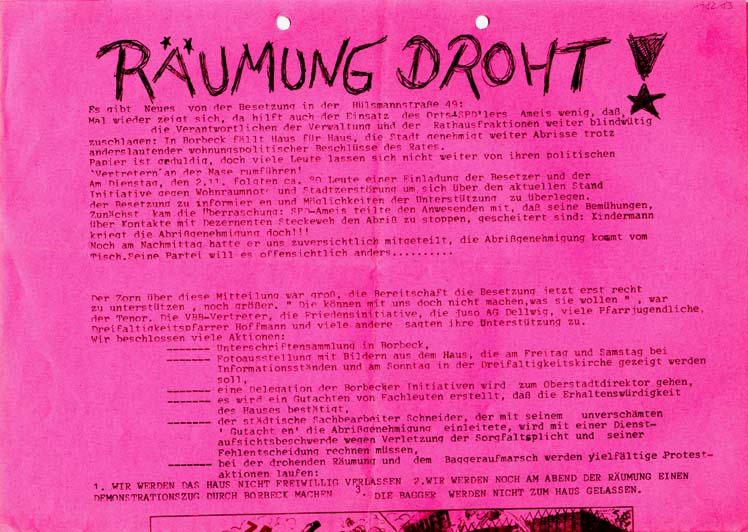 RÄUMUNG DROHT!
Es gibt Neues von der Besetzung in der Hülsmannstraße 49:
Mal wieder zeigt sich, da hilft auch der Einsatz des Orts-SPD'lers Ameis wenig, daß,
die Verantwortlichen der Verwaltung und der Rathausfraktionen weiter blindwütig
zuschlagen: In Borbeck fällt Haus für Haus, die Stadt genehmigt weiter Abrisse trotz
anderslautender wohnungspolitischer Beschlüsse des Rates.
Papier ist geduldig, doch viele Leute lassen sich nicht weiter von ihren politischen
'Vertretern'an der Nase rumführen!
Am Dienstag, den 2.11. folgten ca. 90 Leute einer Einladung der Besetzer und der
Initiative gegen Wohnraumnot und Stadtzerstörung um sich über den aktuellen Stand
der Besetzung zu informieren und Möglichkeiten der Unterstützung zu überlegen.
Zunächst kam die Überraschung: SPD-Ameis teilte den Anwesenden mit, daß seine Bemühungen,
über Kontakte mit Dezernenten Steckeweh den Abriß zu stoppen, gescheitert sind: Kindermann
kriegt die Abrißgenehmigung doch!!!
Noch am Nachmittag hatte er uns zuversichtlich mitgeteilt, die Abrißgenehmigung kommt vom
Tisch.Seine Partei will es offensichtlich anders..........
Der Zorn über diese Mitteilung war groß, die Bereitschaft die Besetzung jetzt erst recht
zu unterstützen , noch größer. " Die können mit uns doch nicht machen,was sie wollen " , war
der Tenor. Die VBB-Vertreter, die Friedensinitiative, die Juso AG Dellwig, viele Pfarrjugendliche,
Dreifaltigkeitspfarrer Hoffmann und viele andere sagten ihre Unterstützung zu.
Wir beschlossen viele Aktionen:
------- Unterschriftensammlung in Borbeck,
------- Fotoausstellung mit Bildern aus dem Haus, die am Freitag und Samstag bei
Informationsständen und am Sonntag in der Dreifaltigkeitskirche gezeigt werden
soll,
------- eine Delegation der Borbecher Initiativen wird zum Oberstadtdirektor gehen,
------- es wird ein Gutachten von Fachleuten erstellt, daß die Erhaltenswürdigkeit
des Hauses bestätigt,
------- der städtische Sachbearbeiter Schneider, der mit seinem unverschämten
' Gutacht en' die Abrißgenehmigung einleitete, wird mit einer Dienst-
aufsichtsbeschwerde wegen Verletzung der Sorgfaltsplicht und seiner
Fehlentscheidung rechnen müssen,
------- bei der drohenden Räumung und dem Baggeraufmarsch werden vielfältige Protest-
aktionen laufen:
1. WIR WERDEN DAS HAUS NICHT FREIWILLIG VERLASSEN 2.WIR WERDEN NOCH AM ABEND DER RÄUMUNG EINEN
DEMONSTRATIONSZUG DURCH BORBECK MACHEN 3. DIE BAGGER WERDEN NICHT ZUM HAUS GELASSEN.